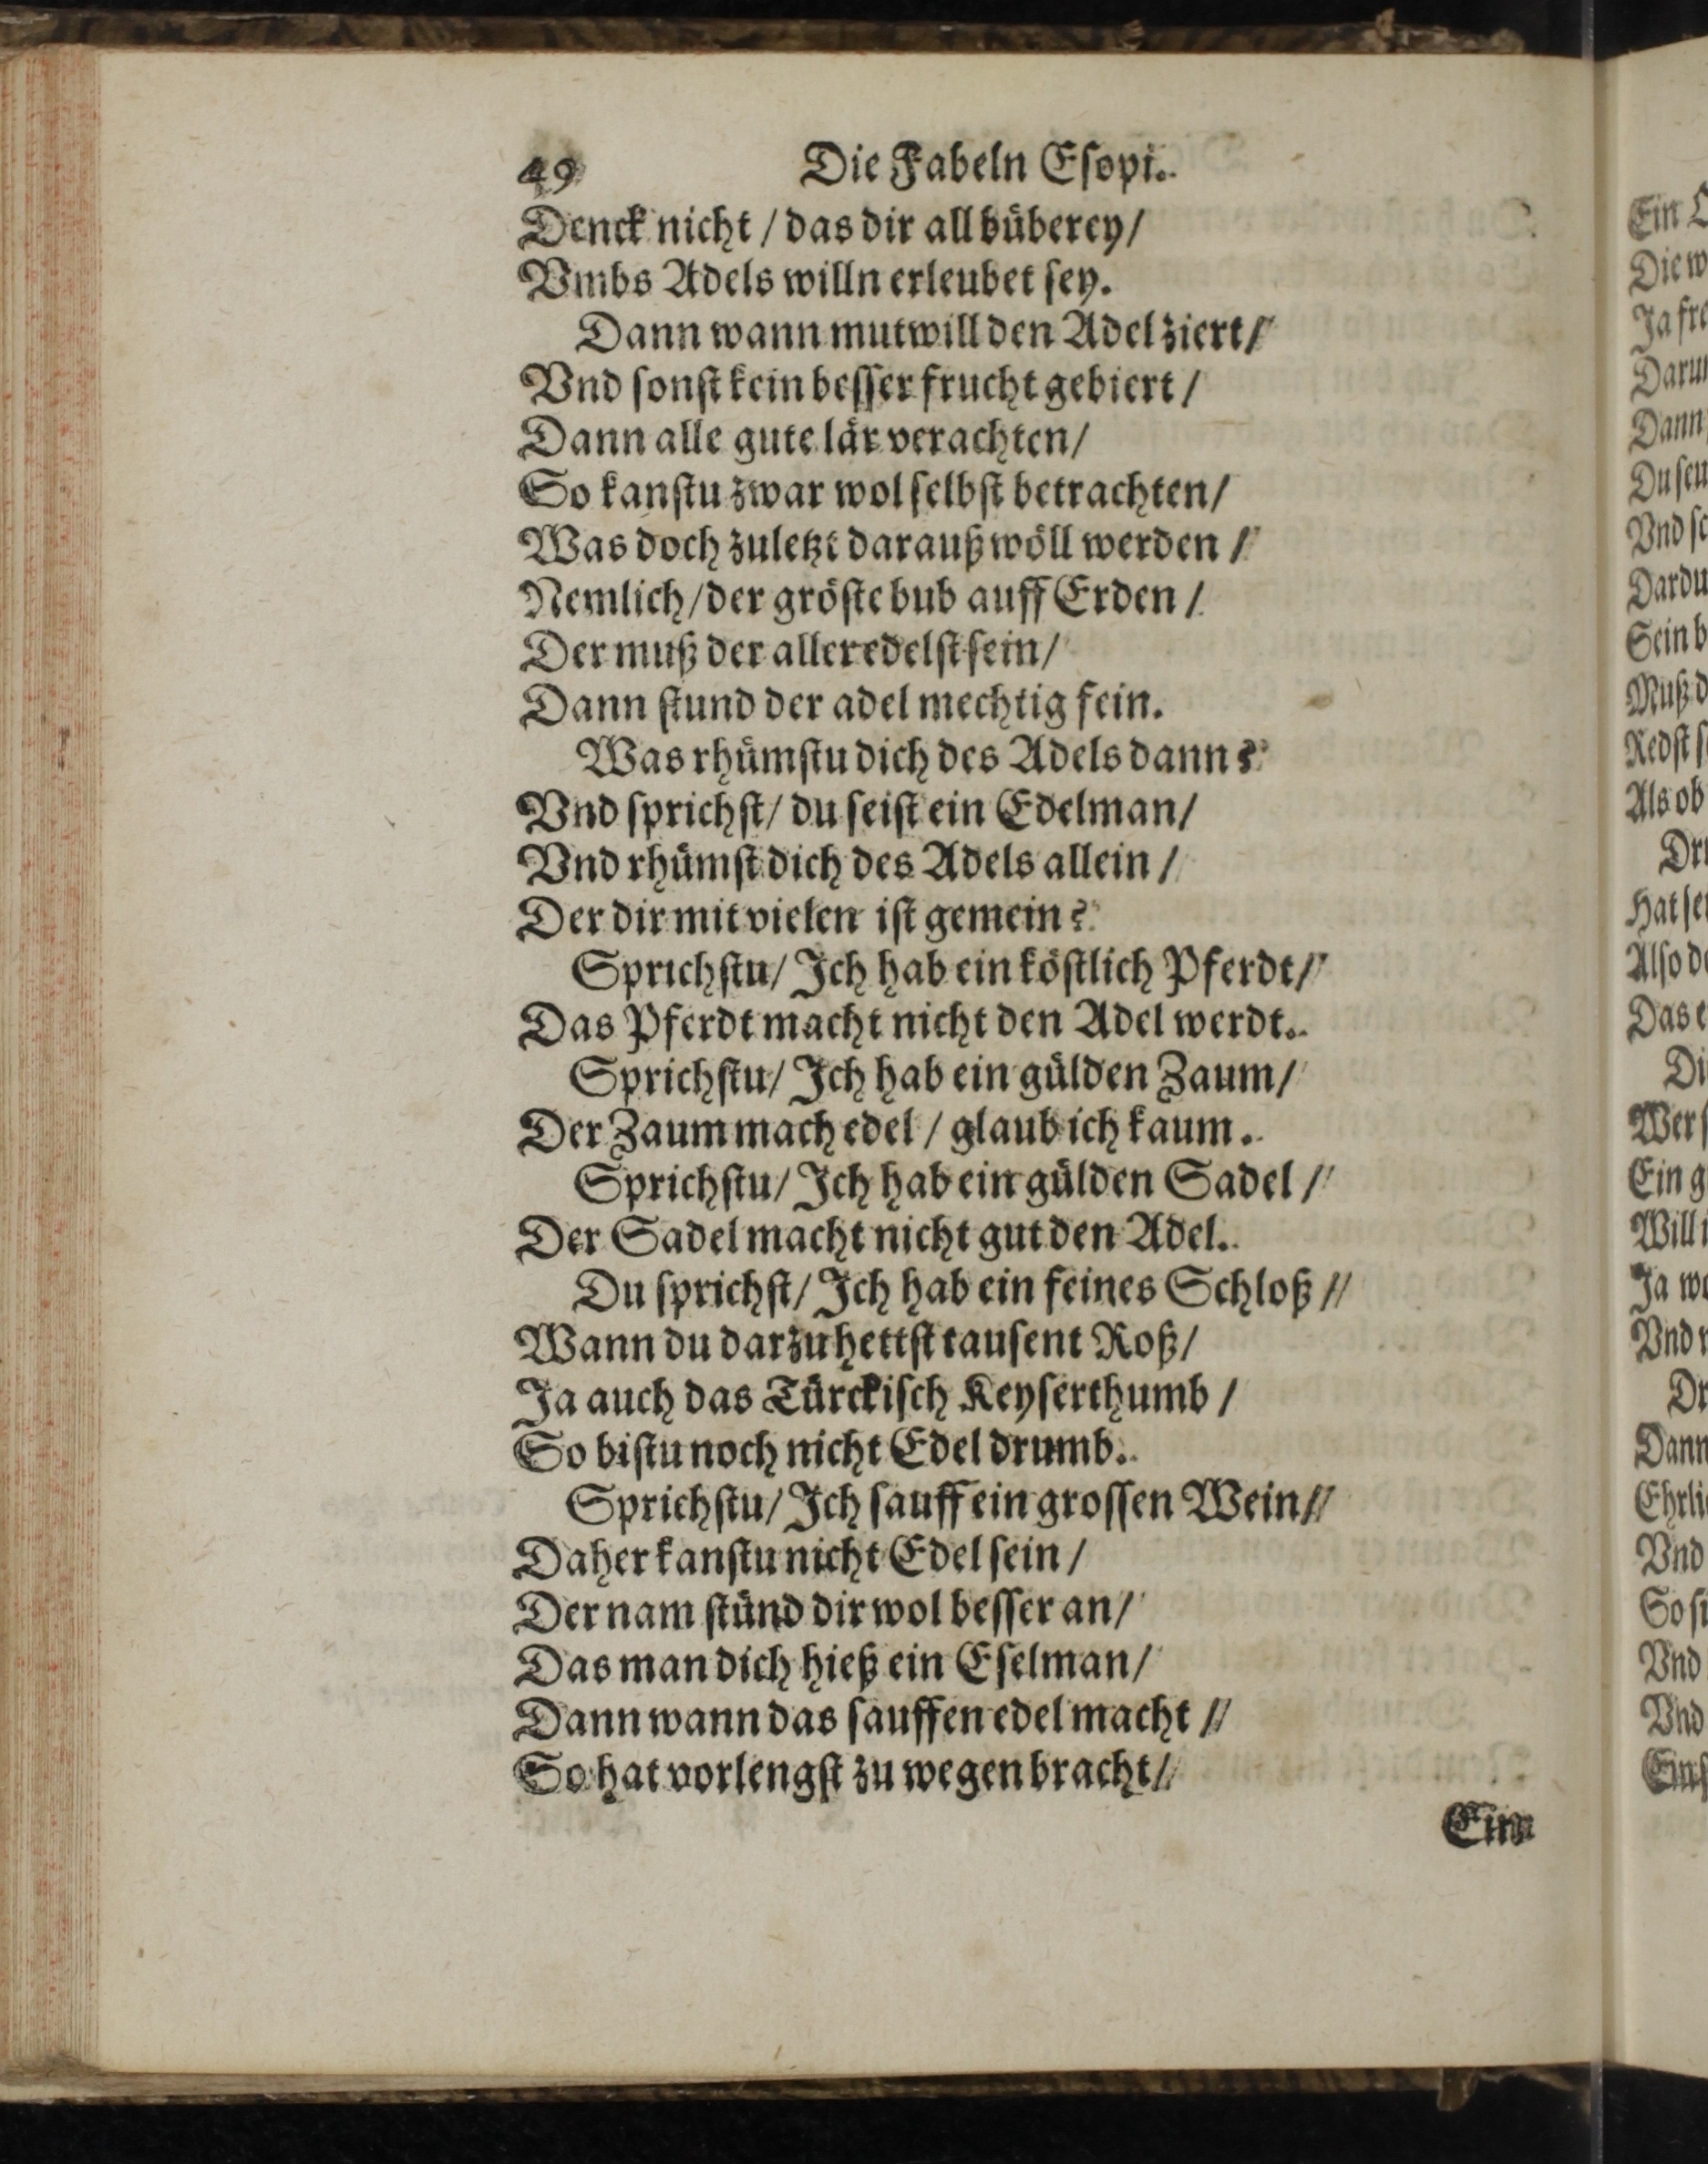 49 Die Fabeln Eſopi.
Denck nicht / das dir all büberey /
Vmbs Adels willn erleubet ſey.
Dann wann mutwill den Adel ziert /
Vnd ſonſt kein beſſer frucht gebiert /
Dann alle gute lär verachten /
So kanſtu zwar wol ſelbſt betrachten /
Was doch zuletzt darauß wöll werden /
Nemlich / der gröſte bub auff Erden /
Der muß der alleredelſt ſein /
Dann ſtund der adel mechtig fein.
Was rhümſtu dich des Adels dann?
Vnd ſprichſt / du ſeiſt ein Edelman /
Vnd rhümſt dich des Adels allein /
Der dir mit vielen iſt gemein?
Sprichſtu / Ich hab ein köſtlich Pferdt /
Das Pferdt macht nicht den Adel werdt.
Sprichſtu / Ich hab ein gülden Zaum /
Der Zaum mach edel / glaub ich kaum.
Sprichſtu / Ich hab ein gülden Sadel /
Der Sadel macht nicht gut den Adel.
Du ſprichſt / Ich hab ein feines Schloß /
Wann du darzu hettſt tauſent Roß /
Ja auch das Türckiſch Keyſerthumb /
So biſtu noch nicht Edel drumb.
Sprichſtu / Ich ſauff ein groſſen Wein /
Daher kanſtu nicht Edel ſein /
Der nam ſtünd dir wol beſſer an /
Das man dich hieß ein Eſelman /
Dann wann das ſauffen edel macht /
So hat vorlengſt zu wegen bracht /
Ein
Ein
Die
Ja
Dann
Vnd
Sein
Muß
Redſt
Als ob
Alſo
Das
Wer
Ein
Will
Ja
Vnd
Dann
Vnd
So
Vnd
Vnd